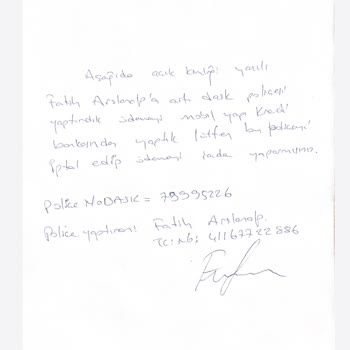 Aşağıda açık kimliği yazılı
Fatih Arslanalp'a ait dask poliçesi
yaptırdık ödemeyi yapı Kredi
bankasından yaptık lütfen bu poliçeyi
iptal edip ödemeyi iade yaparmısınız.
police No DASK = 79995226
Police yaptıran: Fatih Arslanalp.
TC: No: 41167722886